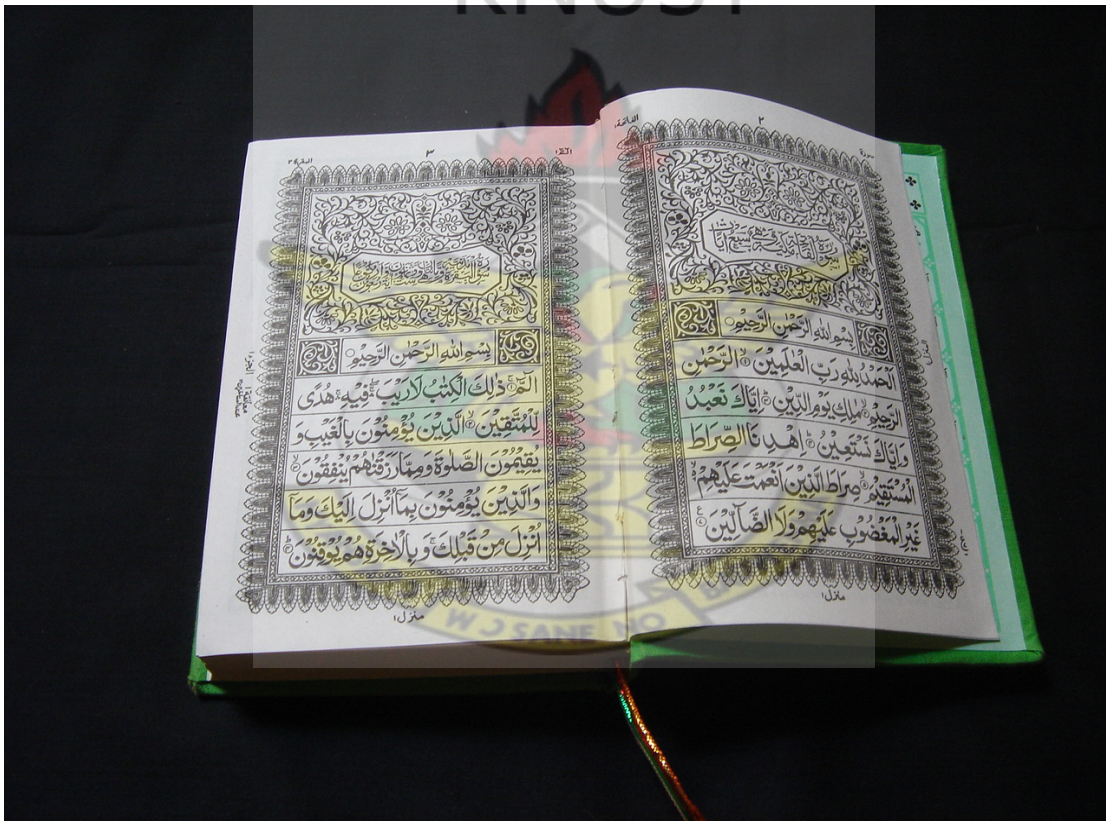 KNUST
الفاتحة
٢
سورة
سورة الفاتحة مكية وهي سبع آيات
بِسْمِ اللهِ الرَّحْمٰنِ الرَّحِيْمِ
اَلْحَمْدُ لِلّٰهِ رَبِّ الْعٰلَمِيْنَ ۙ الرَّحْمٰنِ
الرَّحِيْمِ ۙ مٰلِكِ يَوْمِ الدِّيْنِ ۗ اِيَّاكَ نَعْبُدُ
وَاِيَّاكَ نَسْتَعِيْنُ ۗ اِهْدِنَا الصِّرَاطَ
الْمُسْتَقِيْمَ ۙ صِرَاطَ الَّذِيْنَ اَنْعَمْتَ عَلَيْهِمْ
غَيْرِ الْمَغْضُوْبِ عَلَيْهِمْ وَلَا الضَّآلِّيْنَ
منزل ١
٣
البقرة ٢
بِسْمِ اللهِ الرَّحْمٰنِ الرَّحِيْمِ
الٓمّٓ ۚ ذٰلِكَ الْكِتٰبُ لَا رَيْبَ ۛ فِيْهِ ۛ هُدًى
لِّلْمُتَّقِيْنَ ۙ الَّذِيْنَ يُؤْمِنُوْنَ بِالْغَيْبِ وَ
يُقِيْمُوْنَ الصَّلٰوةَ وَمِمَّا رَزَقْنٰهُمْ يُنْفِقُوْنَ ۙ
وَالَّذِيْنَ يُؤْمِنُوْنَ بِمَآ اُنْزِلَ اِلَيْكَ وَمَآ
اُنْزِلَ مِنْ قَبْلِكَ ۚ وَبِالْاٰخِرَةِ هُمْ يُوْقِنُوْنَ ۗ
منزل ١
W Ɔ SANE NO